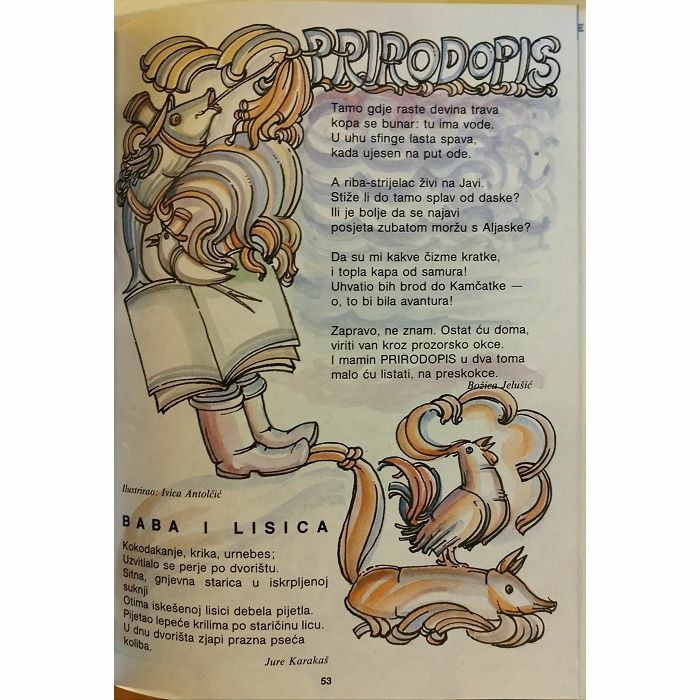 PRIRODOPIS
Tamo gdje raste devina trava
kopa se bunar: tu ima vode.
U uhu sfinge lasta spava,
kada ujesen na put ode.
A riba-strijelac živi na Javi.
Stiže li do tamo splav od daske?
Ili je bolje da se najavi
posjeta zubatom moržu s Aljaske?
Da su mi kakve čizme kratke,
i topla kapa od samura!
Uhvatio bih brod do Kamčatke —
o, to bi bila avantura!
Zapravo, ne znam. Ostat ću doma,
viriti van kroz prozorsko okce.
I mamin PRIRODOPIS u dva toma
malo ću listati, na preskokce.
Božica Jelušić
Ilustrirao: Ivica Antolčić
BABA I LISICA
Kokodakanje, krika, urnebes;
Uzvitlalo se perje po dvorištu.
Sitna, gnjevna starica u iskrpljenoj
suknji
Otima iskešenoj lisici debela pijetla.
Pijetao lepeće krilima po staričinu licu.
U dnu dvorišta zjapi prazna pseća
koliba.
Jure Karakaš
53
E